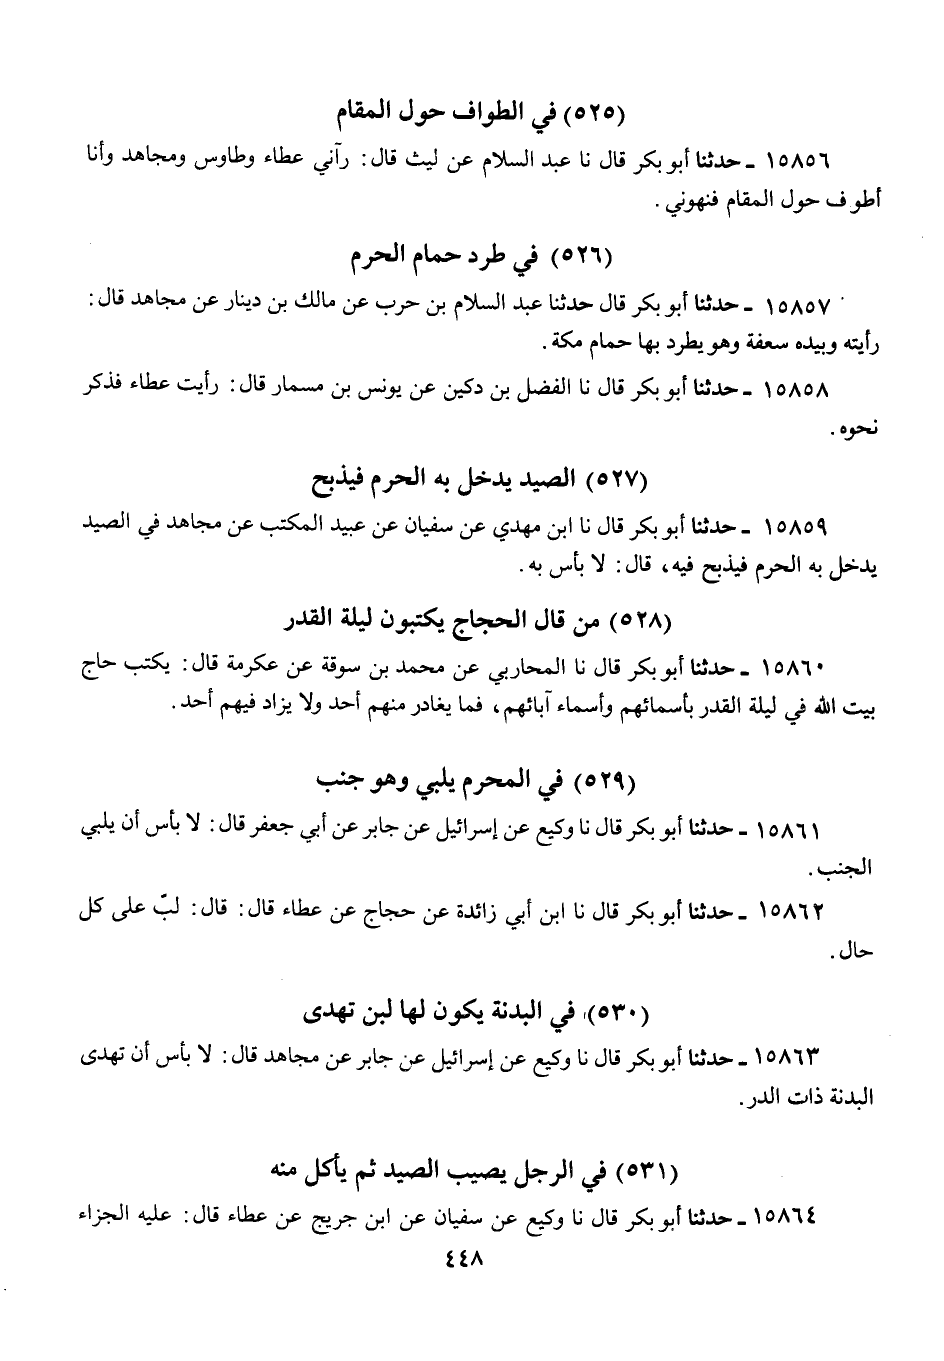 (٥٢٥) في الطواف حول المقام
١٥٨٥٦ ـ حدثنا أبو بكر قال نا عبد السلام عن ليث قال: رآني عطاء وطاوس ومجاهد وأنا
أطوف حول المقام فنهوني.
(٥٢٦) في طرد حمام الحرم
١٥٨٥٧ ـ حدثنا أبو بكر قال حدثنا عبد السلام بن حرب عن مالك بن دينار عن مجاهد قال:
رأيته وبيده سعفة وهو يطرد بها حمام مكة.
١٥٨٥٨ ـ حدثنا أبو بكر قال نا الفضل بن دكين عن يونس بن مسمار قال: رأيت عطاء فذكر
نحوه.
(٥٢٧) الصيد يدخل به الحرم فيذبح
١٥٨٥٩ ـ حدثنا أبو بكر قال نا ابن مهدي عن سفيان عن عبيد المكتب عن مجاهد في الصيد
يدخل به الحرم فيذبح فيه، قال: لا بأس به.
(٥٢٨) من قال الحجاج يكتبون ليلة القدر
١٥٨٦٠ ـ حدثنا أبو بكر قال نا المحاربي عن محمد بن سوقة عن عكرمة قال: يكتب حاج
بيت الله في ليلة القدر بأسمائهم وأسماء آبائهم، فما يغادر منهم أحد ولا يزاد فيهم أحد.
(٥٢٩) في المحرم يلبي وهو جنب
١٥٨٦١ ـ حدثنا أبو بكر قال نا وكيع عن إسرائيل عن جابر عن أبي جعفر قال: لا بأس أن يلبي
الجنب.
١٥٨٦٢ ـ حدثنا أبو بكر قال نا ابن أبي زائدة عن حجاج عن عطاء قال: قال: لبّ على كل
حال.
(٥٣٠) في البدنة يكون لها لبن تهدى
١٥٨٦٣ ـ حدثنا أبو بكر قال نا وكيع عن إسرائيل عن جابر عن مجاهد قال: لا بأس أن تهدى
البدنة ذات الدر.
(٥٣١) في الرجل يصيب الصيد ثم يأكل منه
١٥٨٦٤ ـ حدثنا أبو بكر قال نا وكيع عن سفيان عن ابن جريج عن عطاء قال: عليه الجزاء
٤٤٨